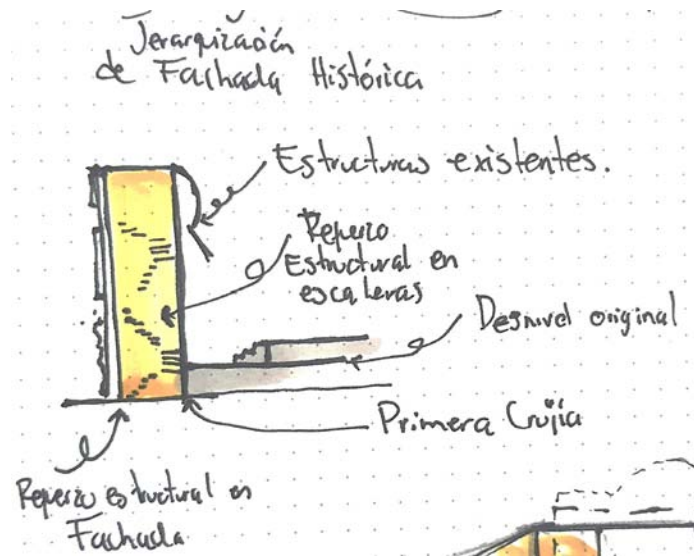 Jerarquización
de Fachada Histórica
Estructuras existentes.
Refuerzo
Estructural en
escaleras
Desnivel original
Primera Crujía
Refuerzo estructural en
Fachada